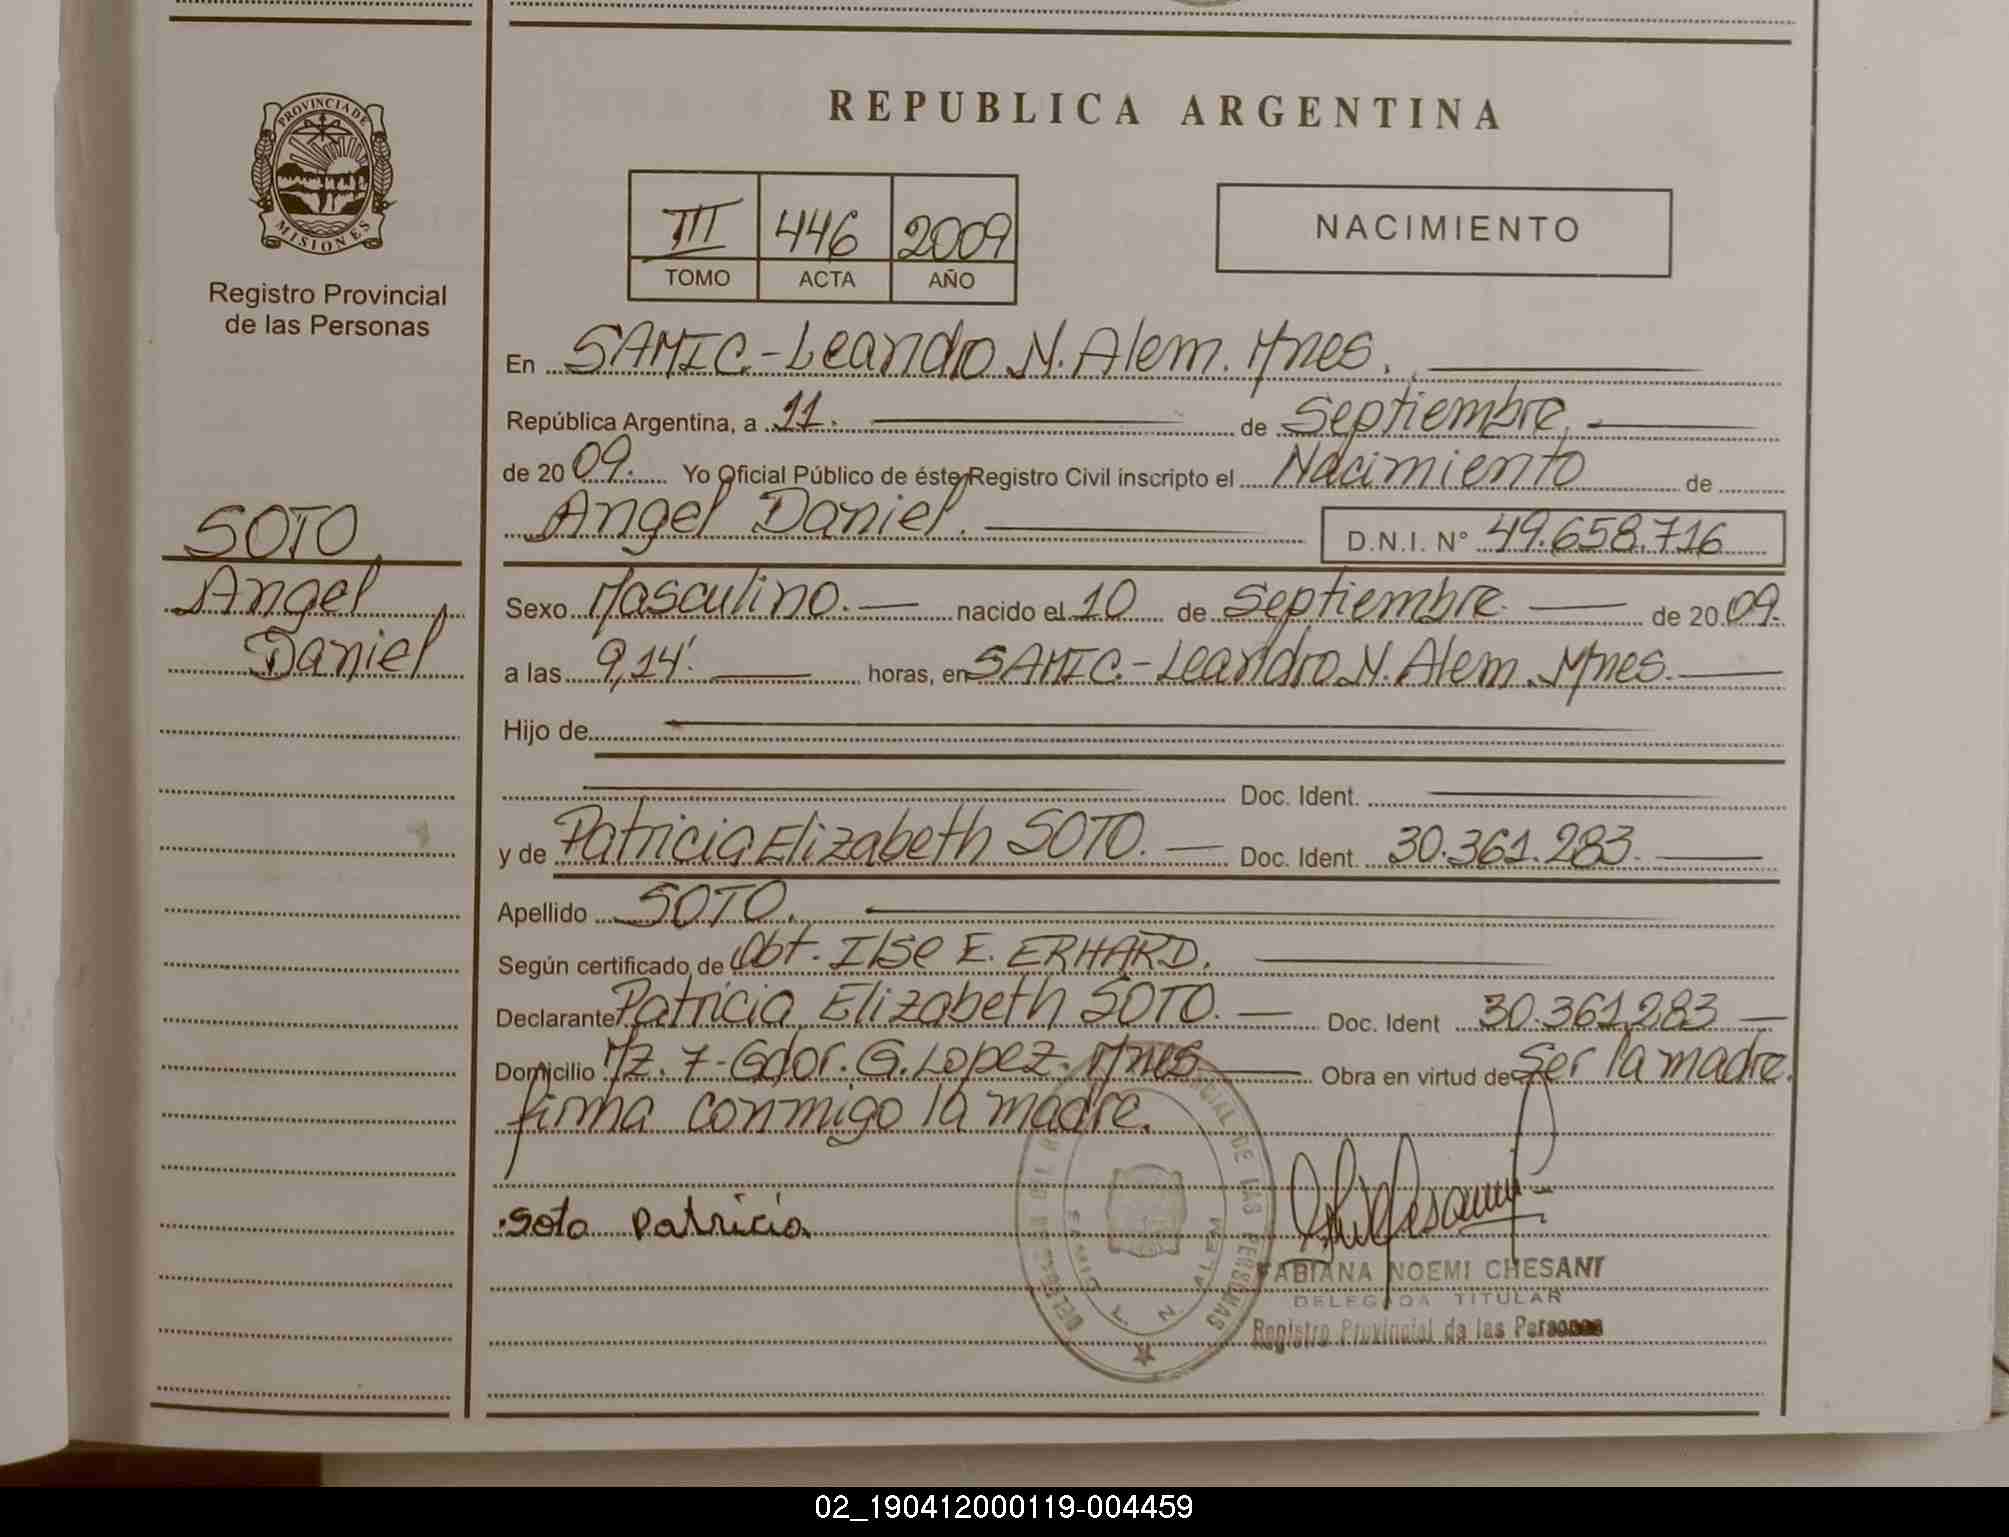 PROVINCIA DE
MISIONES
Registro Provincial
de las Personas
SOTO
Angel
Daniel
REPUBLICA ARGENTINA
III 446 2009
TOMO ACTA AÑO
NACIMIENTO
En SAMIC.-Leandro N. Alem. Mnes.
República Argentina, a 11. de Septiembre.
de 2009. Yo Oficial Público de éste Registro Civil inscripto el Nacimiento de
Angel Daniel. D.N.I. N° 49.658.716
Sexo Masculino. nacido el 10 de Septiembre. de 2009.
a las 9,14'. horas, en SAMIC.-Leandro N. Alem. Mnes.
Hijo de
Doc. Ident.
y de Patricia Elizabeth SOTO. Doc. Ident. 30.361.283.
Apellido SOTO.
Según certificado de Obt. Ilse E. ERHARD.
Declarante Patricia Elizabeth SOTO. Doc. Ident 30.361.283
Domicilio Mz. 7-Gdor. G. Lopez. Mnes Obra en virtud de Ser la madre.
firma conmigo la madre.
Soto Patricia
CIAL DE LAS PERSONAS
SAMIC L. N. ALEM
FABIANA NOEMI CHESANI
DELEGADA TITULAR
Registro Provincial de las Personas
02_190412000119-004459